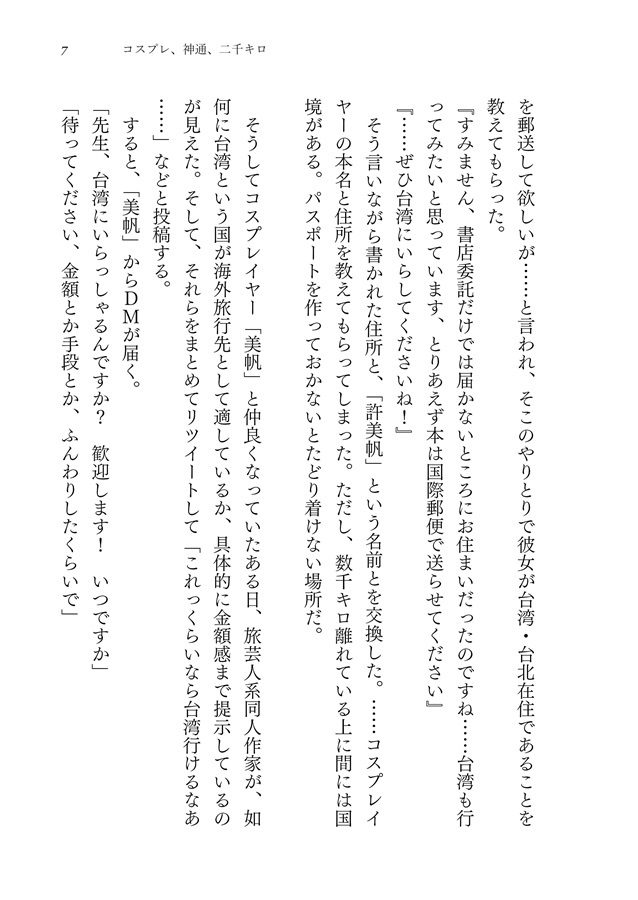 7
コスプレ、神通、二千キロ
を郵送して欲しいが……と言われ、そこのやりとりで彼女が台湾・台北在住であることを
教えてもらった。
『すみません、書店委託だけでは届かないところにお住まいだったのですね……台湾も行
ってみたいと思っています、とりあえず本は国際郵便で送らせてください』
『……ぜひ台湾にいらしてくださいね！』
そう言いながら書かれた住所と、「許美帆」という名前とを交換した。……コスプレイ
ヤーの本名と住所を教えてもらってしまった。ただし、数千キロ離れている上に間には国
境がある。パスポートを作っておかないとたどり着けない場所だ。
そうしてコスプレイヤー「美帆」と仲良くなっていたある日、旅芸人系同人作家が、如
何に台湾という国が海外旅行先として適しているか、具体的に金額感まで提示しているの
が見えた。そして、それらをまとめてリツイートして「これっくらいなら台湾行けるなあ
……」などと投稿する。
すると、「美帆」からＤＭが届く。
「先生、台湾にいらっしゃるんですか？　歓迎します！　いつですか」
「待ってください、金額とか手段とか、ふんわりしたくらいで」